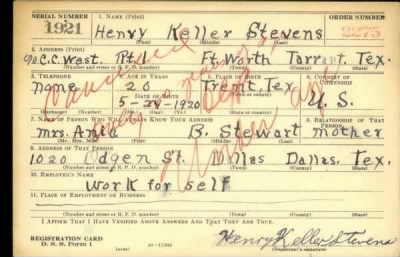 SERIAL NUMBER 1. NAME (Print) ORDER NUMBER
1921 Henry Keller Stevens 2275
2. ADDRESS (Print)
c/o C.C. West. Rt. 1 Ft. Worth Tarrant, Tex.
3. TELEPHONE 4. AGE IN YEARS 5. PLACE OF BIRTH 6. COUNTRY OF CITIZENSHIP
none 20 Trent, Tex.
DATE OF BIRTH
5-24-1920 U.S.
7. NAME OF PERSON WHO WILL ALWAYS KNOW YOUR ADDRESS 8. RELATIONSHIP OF THAT PERSON
Mrs. B. Stewart mother
9. ADDRESS OF THAT PERSON
1020 Odgen St. Dallas Dallas, Tex.
(Number and street or R. F. D. number) (Town) (County) (State)
10. EMPLOYER'S NAME
Work for self
11. PLACE OF EMPLOYMENT OR BUSINESS
(Number and street or R. F. D. number) (Town) (County) (State)
I AFFIRM THAT I HAVE VERIFIED ABOVE ANSWERS AND THAT THEY ARE TRUE.
REGISTRATION CARD
D. S. S. Form 1 Henry Keller Stevens
(Registrant's signature)